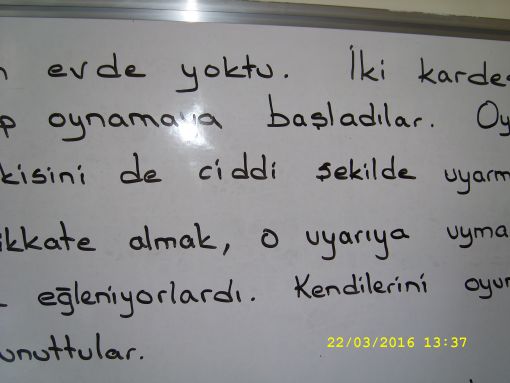 evde yoktu. İki karde
oynamaya başladılar. Oy
kisini de ciddi şekilde uyarm
ikkate almak, o uyarıya uyma
eğleniyorlardı. Kendilerini oyun
unuttular.
22/03/2016 13:37